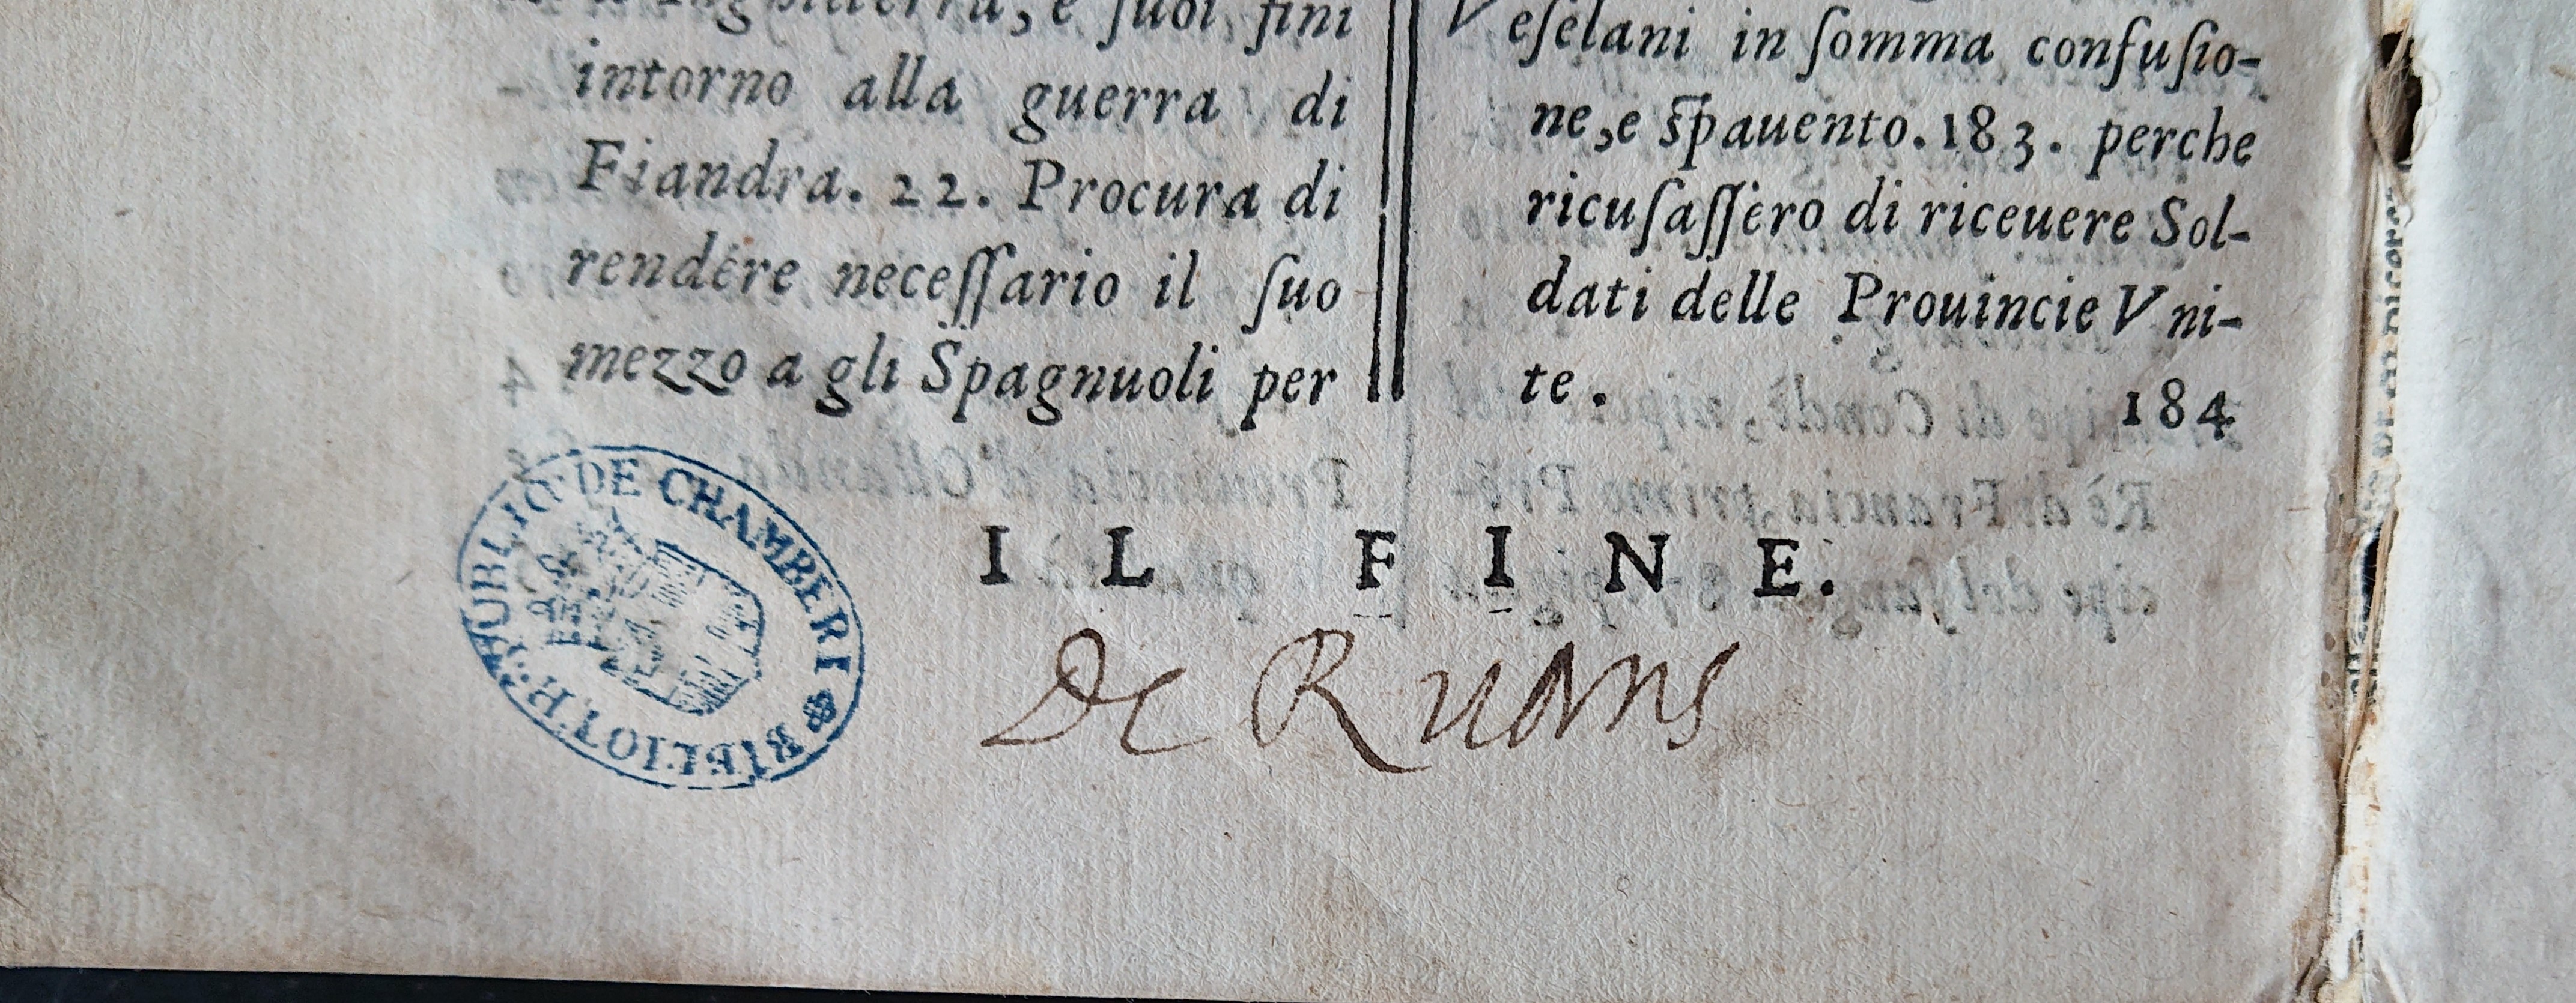 Inghilterra, e ſuoi fini
intorno alla guerra di
Fiandra. 22. Procura di
rendere neceſſario il ſuo
mezzo a gli Spagnuoli per
Veſelani in ſomma confuſio-
ne, e ſpauento. 183. perche
ricuſaſſero di riceuere Sol-
dati delle Prouincie Vni-
te. 184
IL FINE.
BIBLIOTH. PUBLIQ. DE CHAMBERI
De